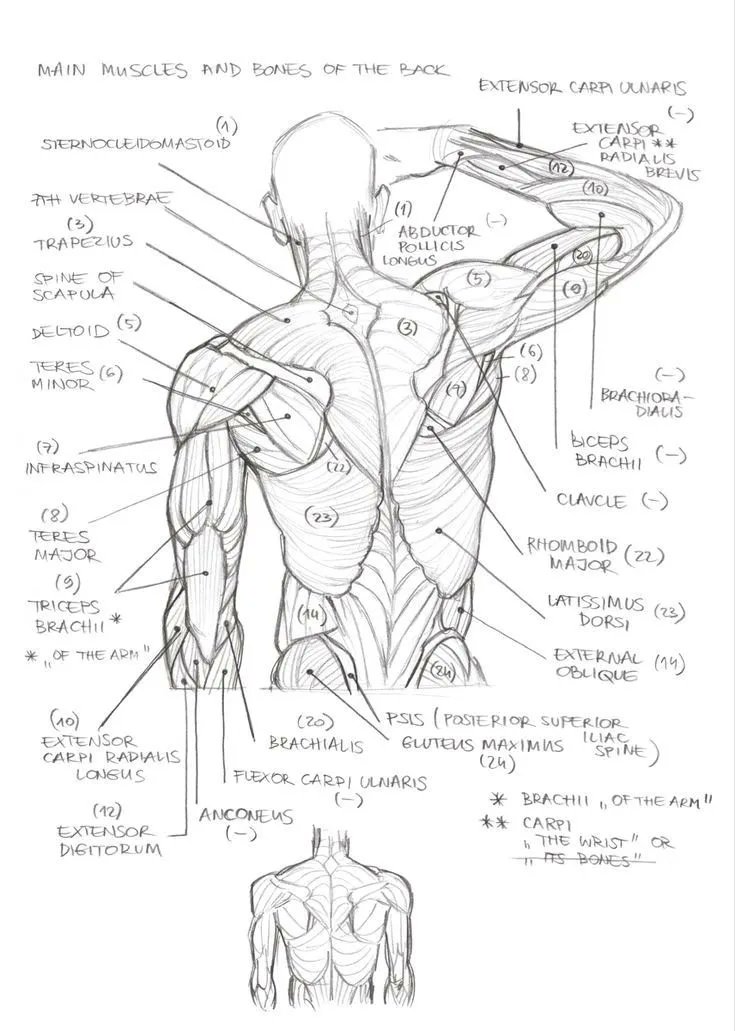 MAIN MUSCLES AND BONES OF THE BACK
EXTENSOR CARPI ULNARIS
(-)
(1)
STERNOCLEIDOMASTOID
EXTENSOR
CARPI **
RADIALIS
BREVIS
(12)
(10)
7TH VERTEBRAE
(3)
TRAPEZIUS
(1)
ABDUCTOR (-)
POLLICIS
LONGUS
SPINE OF
SCAPULA
(5)
(20)
(9)
(3)
DELTOID (5)
TERES
MINOR (6)
(6)
(8)
(9)
(-)
BRACHIORA-
DIALIS
(7)
INFRASPINATUS
BICEPS
BRACHII (-)
(22)
CLAVCLE (-)
(23)
(8)
TERES
MAJOR
RHOMBOID
MAJOR (22)
(9)
TRICEPS
BRACHII *
* „OF THE ARM"
LATISSIMUS
DORSI (23)
(14)
EXTERNAL
OBLIQUE (14)
(24)
(10)
EXTENSOR
CARPI RADIALIS
LONGUS
(20)
BRACHIALIS
PSIS (POSTERIOR SUPERIOR
ILIAC
SPINE)
GLUTEUS MAXIMUS
(24)
FLEXOR CARPI ULNARIS
(-)
(12)
EXTENSOR
DIGITORUM
ANCONEUS
(-)
* BRACHII „OF THE ARM"
** CARPI
„THE WRIST" OR
„ITS BONES"